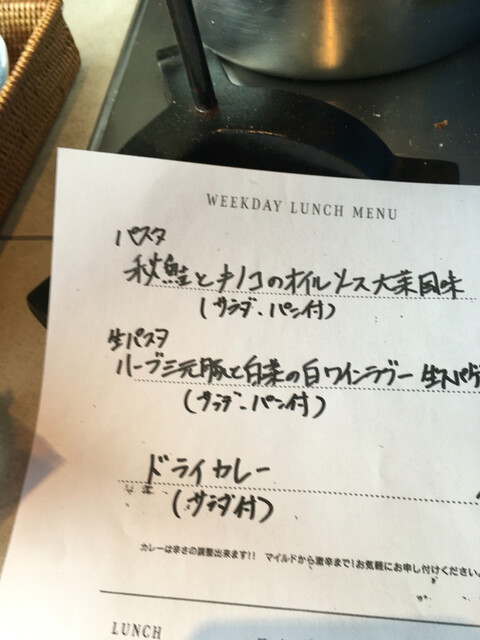 WEEKDAY LUNCH MENU
パスタ
秋鮭とキノコのオイルソース大葉風味
(サラダ、パン付)
生パスタ
ハーブ三元豚と白菜の白ワインラグー 生スパゲ
(サラダ、パン付)
ドライカレー
(サラダ付)
カレーは辛さの調整出来ます!! マイルドから激辛まで!お気軽にお申し付けください。
LUNCH